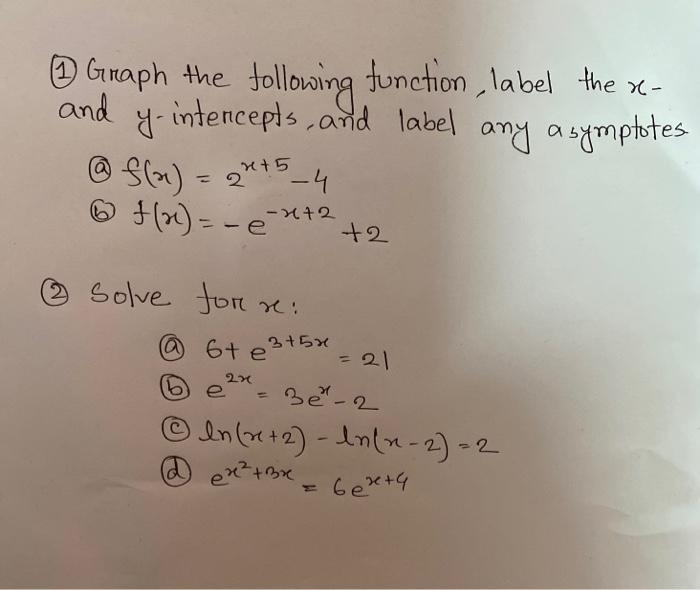 ① Graph the following function, label the x-
and y-intercepts, and label any asymptotes
ⓐ f(x) = 2^{x+5} - 4
ⓑ f(x) = -e^{-x+2} + 2
② Solve for x:
ⓐ 6 + e^{3+5x} = 21
ⓑ e^{2x} = 3e^x - 2
ⓒ ln(x+2) - ln(x-2) = 2
ⓓ e^{x²+3x} = 6e^{x+4}